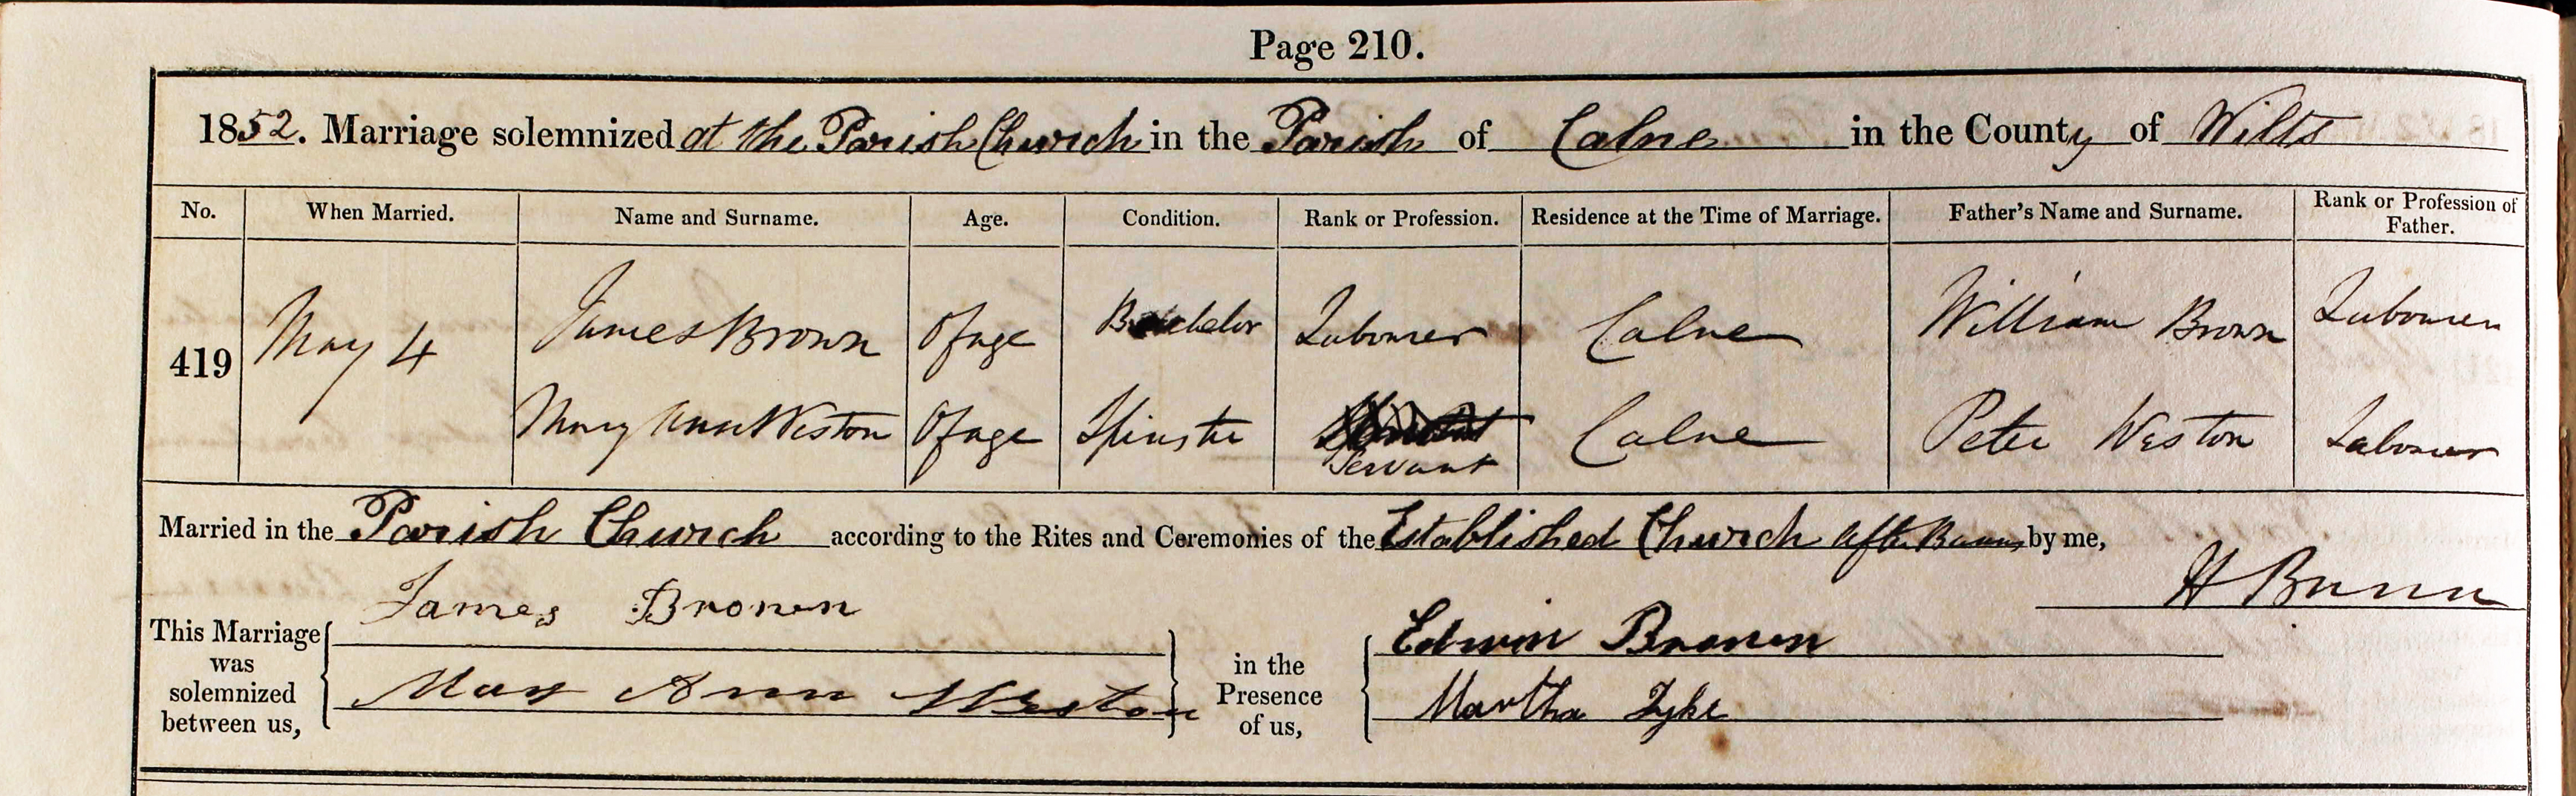 Page 210.
1852. Marriage solemnized at the Parish Church in the Parish of Calne in the County of Wilts
No. When Married. Name and Surname. Age. Condition. Rank or Profession. Residence at the Time of Marriage. Father's Name and Surname. Rank or Profession of Father.
419 May 4 James Brown Of age Bachelor Labourer Calne William Brown Labourer
Mary Ann Weston Of age Spinster Servant Calne Peter Weston Labourer
Married in the Parish Church according to the Rites and Ceremonies of the Established Church after Banns by me,
H Bunn
This Marriage was solemnized between us, James Brown in the Presence of us, Edwin Brown
Mary Ann Weston Martha Zyke